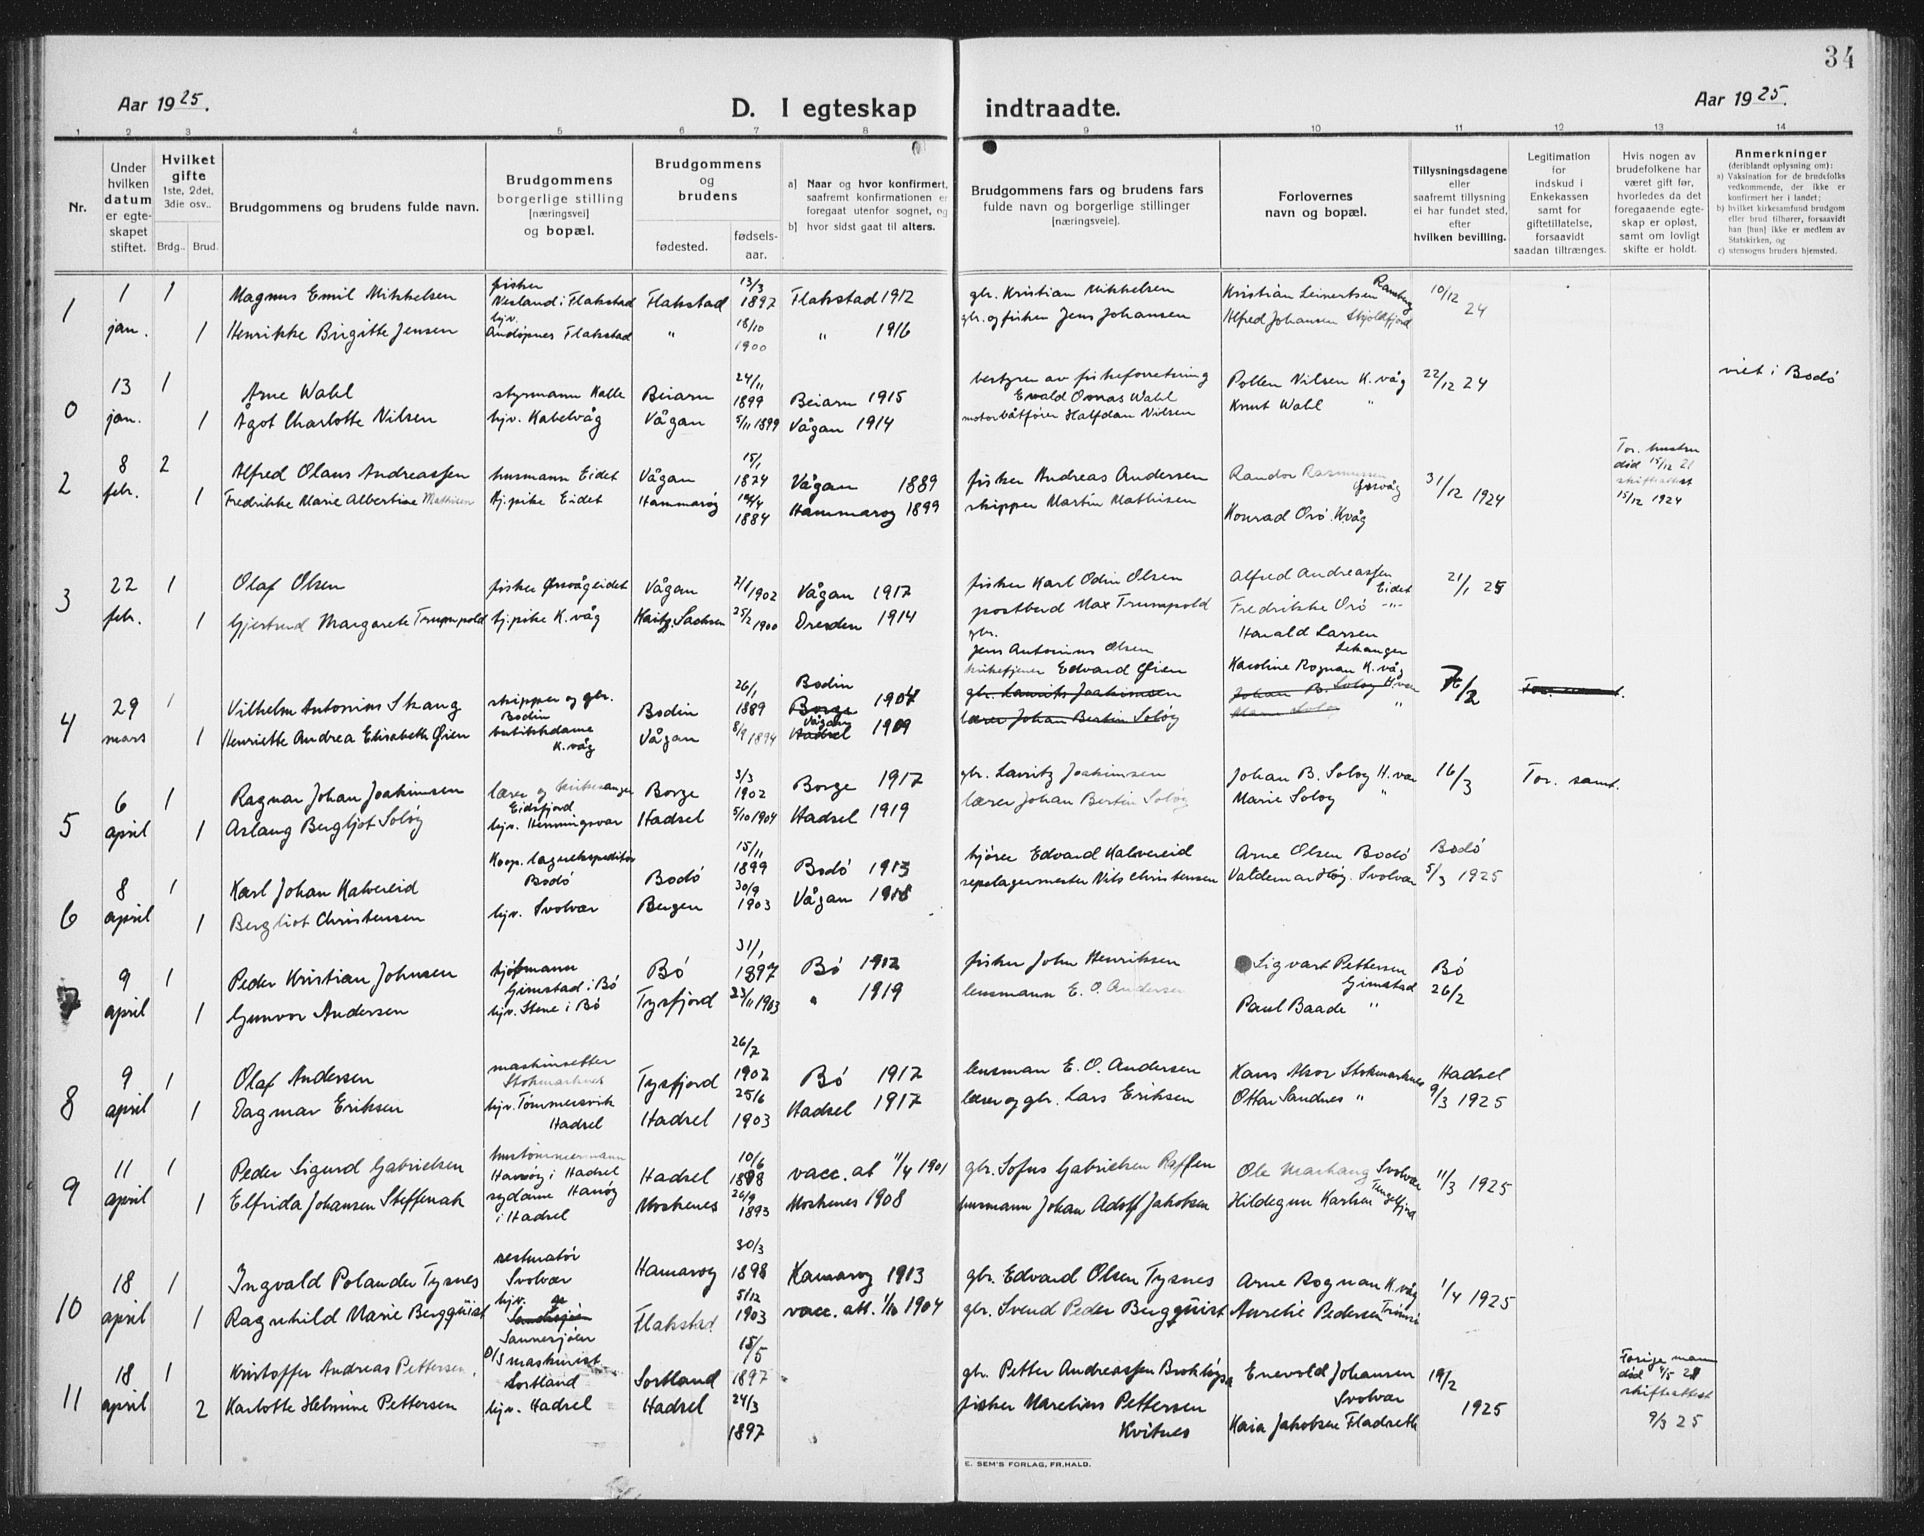 34
Aar 1925.
D. I egteskap indtraadte.
Aar 1925.
1 2 3 4 5 6 7 8 9 10 11 12 13 14
Nr.
Under hvilken datum er egteskapet stiftet.
Hvilket gifte
1ste, 2det, 3die osv..
Brdg.. Brud.
Brudgommens og brudens fulde navn.
Brudgommens borgerlige stilling [næringsvei] og bopæl.
Brudgommens og brudens
fødested.
fødselsaar.
a] Naar og hvor konfirmert, saafremt konfirmationen er foregaat utenfor sognet, og
b] hvor sidst gaat til alters.
Brudgommens fars og brudens fars fulde navn og borgerlige stillinger [næringsveie].
Forlovernes navn og bopæl.
Tillysningsdagene eller saafremt tillysning ei har fundet sted, efter hvilken bevilling.
Legitimation for indskud i Enkekassen samt for giftetillatelse, forsaavidt saadan tiltrænges.
Hvis nogen av brudefolkene har været gift før, hvorledes da det foregaaende egteskap er opløst, samt om lovligt skifte er holdt.
Anmerkninger
(deriblandt oplysning om):
a) Vaksination for de brudefolks vedkommende, der ikke er konfirmert her i landet;
b) hvilket kirkesamfund brudgom eller brud tilhører, forsaavidt han [hun] ikke er medlem av Statskirken, og
c) utensogns bruders hjemsted.
1 1 jan. 1 Magnus Emil Mikkelsen fisker Nesland i Flakstad Flakstad 13/3 1897 Flakstad 1912 gbr. Kristian Mikkelsen Kristian Leinertsen Ramberg 10/12 24
1 Henrikke Birgitte Jensen hjv. Andopnes Flakstad " 18/10 1900 " 1916 gbr. og fisker Jens Johansen Alfred Johansen Skjoldfjord
0 13 jan. 1 Arne Wahl styrmann Kalle Beiarn 24/11 1899 Beiarn 1915 bestyrer av fiskeforretning Ewald Omas Wahl Pollen Nilsen K.våg 22/12 24 viet i Bodö
1 Ågot Charlotte Nilsen hjv. Kabelvåg Vågan 5/11 1899 Vågan 1914 motorbåtfører Halfdan Nilsen Knut Wahl "
2 8 febr. 2 Alfred Olaus Andreassen husmann Eidet Vågan 15/1 1874 Vågan 1889 fisker Andreas Andersen Randor Rasmussen Ørsvåg 31/12 1924 For. hustru död 15/12 21 skifteattest 15/12 1924
1 Fredrikke Marie Albertine Mathisen tj.pike Eidet Hammarøy 1884 Hammarøy 1899 skipper Martin Mathisen Konrad Orö K.våg
3 22 febr. 1 Olaf Olsen fisker Ørsvågeidet Vågan 2/1 1902 Vågan 1917 fisker Karl Odin Olsen Alfred Andreassen Eidet 21/1 25
1 Gjertrud Margarete Trumpold tj.pike K.våg Sachsen 25/2 1900 Dresden 1914 postbud Max Trumpold Fredrikke Orö -"-
4 29 mars 1 Vilhelm Antonius Skaug skipper og gbr. Bodin Bodin 26/1 1889 Bodin Borge 1904 gbr. Jens Antonius Olsen Harald Larsen Lekanger
1 Henriette Andrea Elisabeth Øien butikkdame K.våg Vågan 8/9 1894 Vågan Hadsel 1909 kirketjener Edvard Øien Karoline Rognan K.våg
gbr. Laurits Joakimsen Johan B. Solöy H.vær
lærer Johan Bertin Solöy Marie Solöy "
5 6 april 1 Ragnar Johan Joakimsen lærer og kirkesanger Eidsfjord Borge 3/3 1902 Borge 1917 gbr. Lavritz Joakimsen Johan B. Solöy H.vær 16/3 Tor. samt.
1 Aslaug Bergljot Solöy hjv. Henningsvær Hadsel 5/10 1904 Hadsel 1919 lærer Johan Bertin Solöy Marie Solöy "
6 8 april 1 Karl Johan Kalvereid Koop. lagerekspeditör Bodö Bodö 15/11 1899 Bodö 1913 kjörer Edvard Kalvereid Arne Olsen Bodö Bodö 5/3 1925
1 Bergliot Christensen hjv. Svolvær Bergen 30/9 1903 Vågan 1918 repslagermester Nils Christensen Valdemar Höy. Svolvær
7 9 april 1 Peder Kristian Johnsen kjöpmann Gimstad i Bö Bö 31/1 1897 Bö 1912 fisker John Henriksen Sigvart Pettersen Gimstad Bö 26/2
1 Gunvor Andersen hjv. Stene i Bö Tysfjord 23/11 1903 " 1919 lensmann E. O. Andersen Paul Baade "
8 9 april 1 Olaf Andersen maskinsetter Stokmarknes Tysfjord 26/2 1902 Bö 1917 lensman E. O. Andersen Hans Stokmarknes Hadsel 9/3 1925
1 Dagmar Eriksen hjv. Tömmersvik Hadsel Hadsel 25/6 1903 Hadsel 1917 lærer og gbr. Lars Eriksen Ottar Sandnes "
9 11 april 1 Peder Sigurd Gabrielsen hustömmermann Hanöy i Hadsel Hadsel 10/6 1898 vacc. at 11/4 1901 gbr. Sofus Gabrielsen Raften Ole Markaug Svolvær 11/3 1925
1 Elfrida Johansen Steffenak sydame Hanöy i Hadsel Moskenes 26/9 1893 Moskenes 1908 husmann Johan Adolf Jakobsen Hildegun Karlsen Tengelfjord
10 18 april 1 Ingvald Polander Tysnes restauratör Svolvær Hamaröy 30/3 1898 Hamaröy 1913 gbr. Edvard Olsen Tysnes Arne Rognan K.våg 1/4 1925
1 Ragnhild Marie Bergquist hjv. Sannesjöen Flakstad 5/12 1903 vacc. att. 1/10 1904 gbr. Svend Peder Bergquist Aurelie Pedersen
11 18 april 1 Kristoffer Andreas Pettersen D/S maskinist Sortland Sortland 15/5 1897 gbr. Petter Andreassen Enevold Johansen Svolvær 19/2 1925 Forige mann död skifteattest 9/3 25
2 Karlotte Helmine Pettersen hjv. Hadsel Hadsel 24/3 1897 fisker Marelius Pettersen Kvitnes Kaia Jakobsen Fladseth
E. SEM'S FORLAG, FR.HALD.